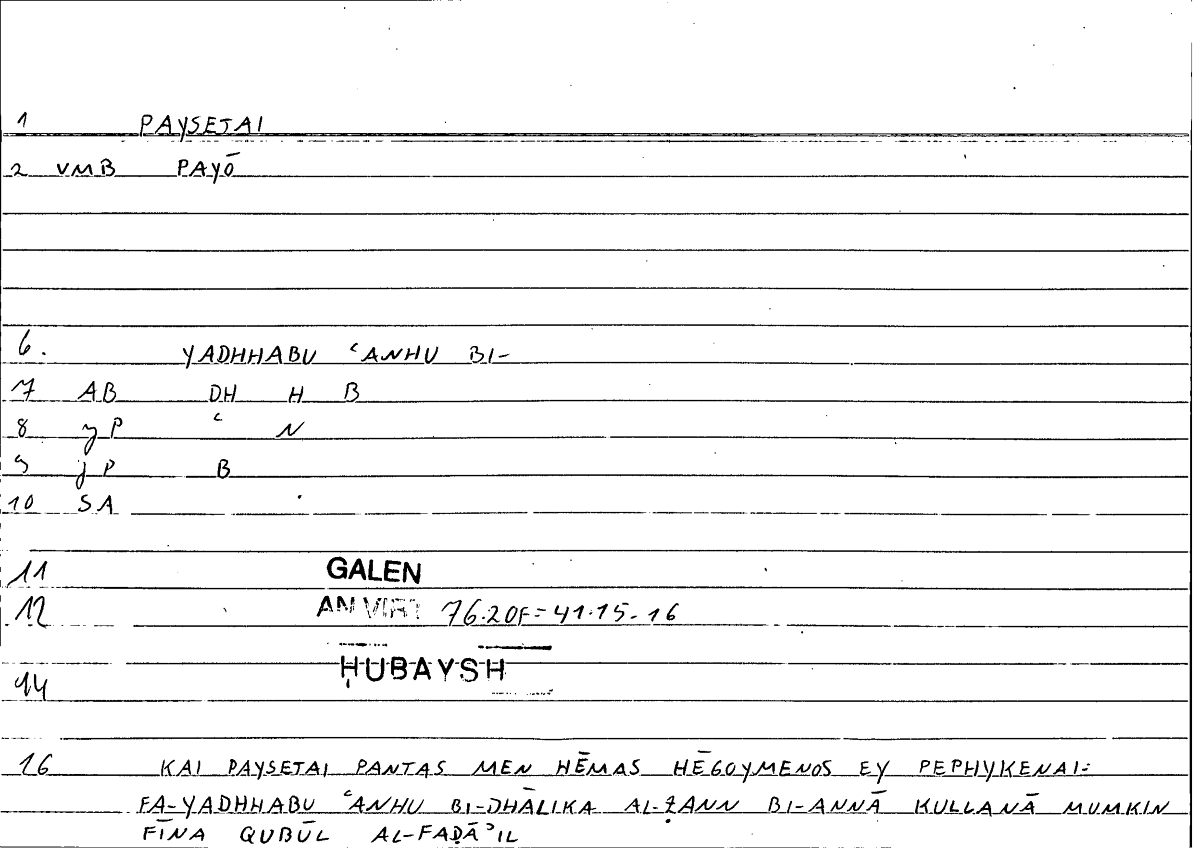 1 PAYSETAI
2 VMB PAYŌ
6. YADHHABU ʿANHU BI-
7 AB DH H B
8 yP ʿ N
9 jP B
10 SA
11 GALEN
12 AN VIRT 76.20F=41.15-16
ḤUBAYSH
14
16 KAI PAYSETAI PANTAS MEN HĒMAS HĒGOYMENOS EY PEPHYKENAI:
FA-YADHHABU ʿANHU BI-DHĀLIKA AL-ẒANN BI-ANNĀ KULLANĀ MUMKIN
FĪNA QUBŪL AL-FAḌĀʾIL